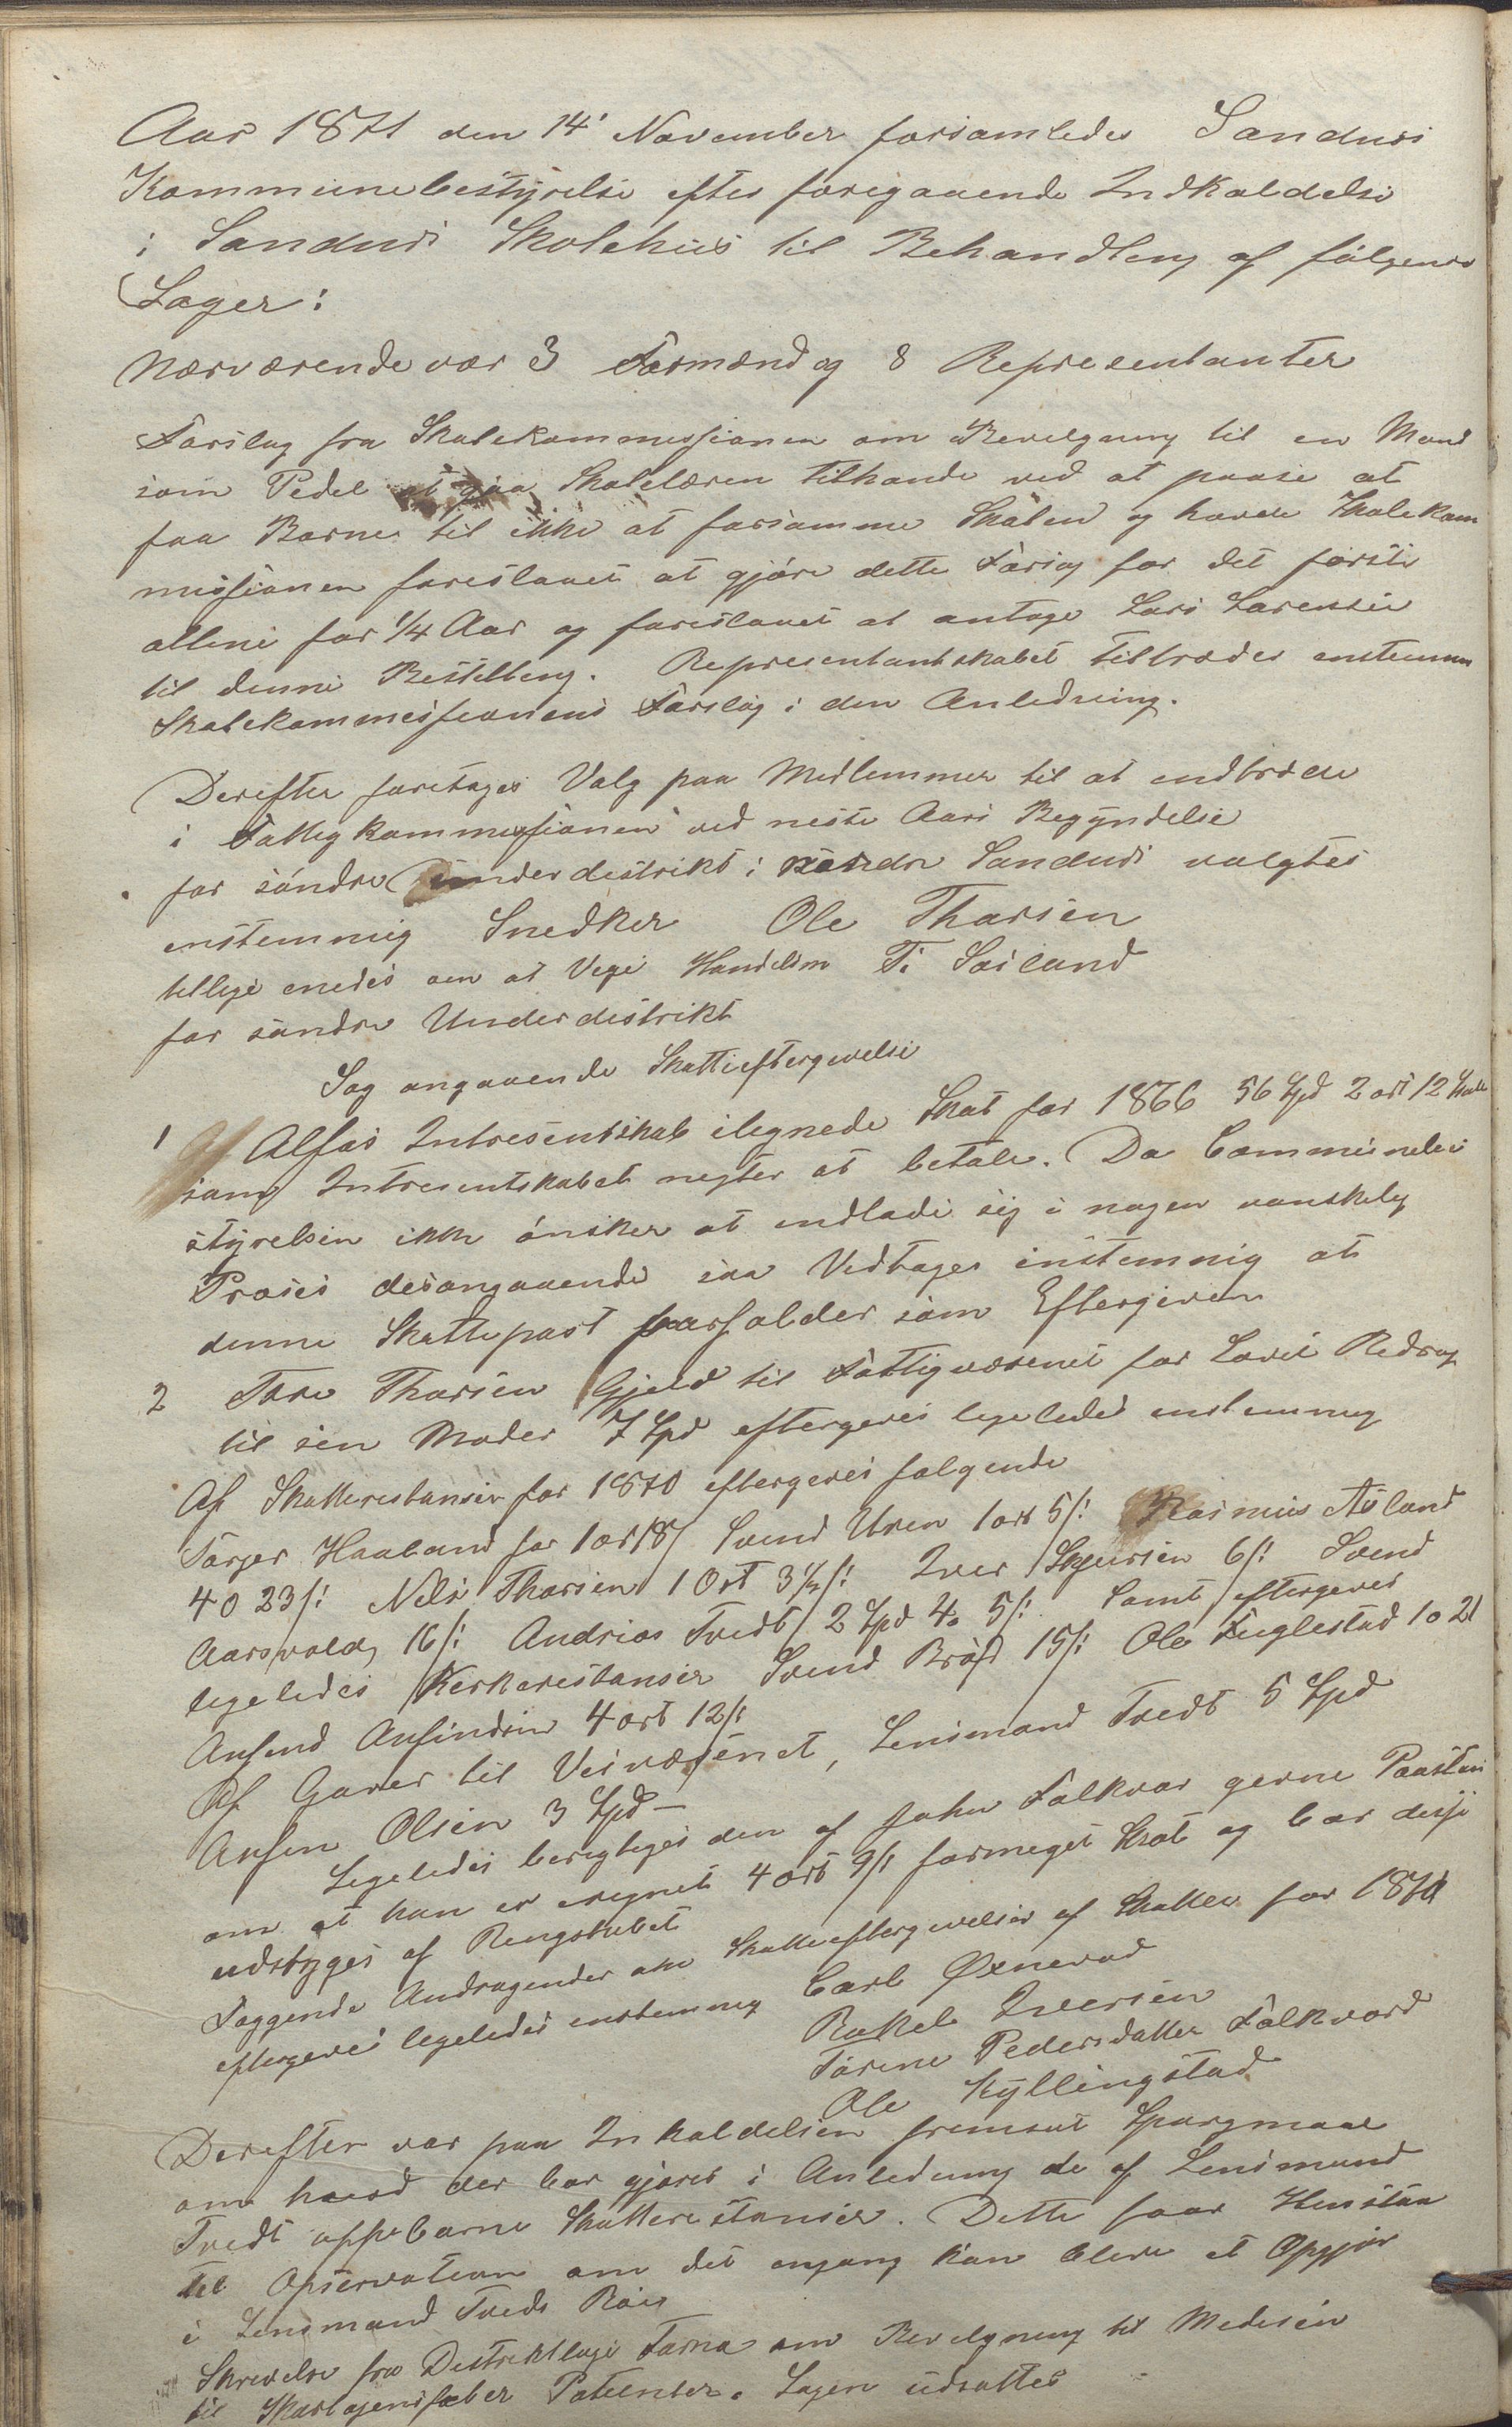 Aar 1871 den 14' November forsamledes Sandnes
Kommunebestyrelse efter foregaaende Indkaldelse
i Sandnes Skolehus til Behandling af følgende
Sager:
Nærværende var 3 Formænd og 8 Representanter
Forslag fra Skolekommissionen om Bevelgning til en Mand
som Pedel at gaa Skolelæren tilhande ved at paase at
faa Barne til ikke at forsømme Skolen og havde Skolekom
missionen foreslaaet at gjøre dette Forsøg for det førsti
alline for 1/4 Aar og foreslaaet at antage Lars Larensen
til denne Bestilleng. Representantskabet tiltræder enstemm
Skolekommissionens Forslag i den Anledning.
Derefter foretages Valg paa Medlemmer til at indtræde
i Fattigkommissionen ved neste Aars Begyndelse
for søndre underdistrikt i søndre Sandnes valgtes
enstemmig Snedker Ole Tharsen
tellige enedes om at Vege Handelsm T. Soiland
for søndre Underdistrikt
Sag angaaende Skatteeftergivelse
1 Alfas Intresentskab ilegnede Skat for 1866 56 Spd 2 ort 12 Skill
som Intresentskabet negter at betale. Da Communebe
styrelsen ikke ønsker at indlade sig i nogen vanskelig
Proses desangaaende saa Vedtages enstemmig at
denne Skattepost forfalder som Eftergiven
2 Tore Tharsen Gjeld til Fattigvæsenet for Lovet Bedrag
til sin Moder 7 Spd eftergives legeledes enstemmig
Af Skatterestanser for 1870 eftergives følgende
Tørger Haaland for 1 ort 18/ Svend Uren 1 ort 5/: Rasmus Asland
4 O 23/: Nels Tharsen 1 Ort 3 1/2/: Iver Sjursen 6/: Svend
Aarsvold 16/: Andrias Tvedt 2 Spd 4o 5/: Samt eftergives
legeledes Kerkerestanser Svend Brøs 15/: Ole Fuglestad 1 o 21
Ansend Ansindsen 4 ort 12/:
Af Gaver til Veivæsenet, Lensmand Tvedt 5 Spd
Ansen Olsen 3 Spd –
Legeledes beregtiges den af John Folkvor gevne Paastan
om at han er iregnet 4 ort 9/: formeget Skat og bør desse
udstryges af Rengskabet
Føggende Andragender om Skatteeftergivelse af Skatten for 1871
eftergives legeledes enstemmig Carl Øxnevad
Rakel Iversen
Torine Pedersdatter Folkvord
Ole Kyllingstad
Derefter var paa Inkaldelsen fremsat Spørgmaal
om hvad der bør gjøres i Anledning de af Lensmand
Tvedt oppebarne Skatterestanser. Dette faar Henstaa
til Opservation om det engang kan bleve et Opgjør
i Lensmand Tveds Bois
Skrivelse fra Destriktlege Tarna om Bevelgning til Medesin
til Skarlagensfeber Patienter. Sagen udsattes